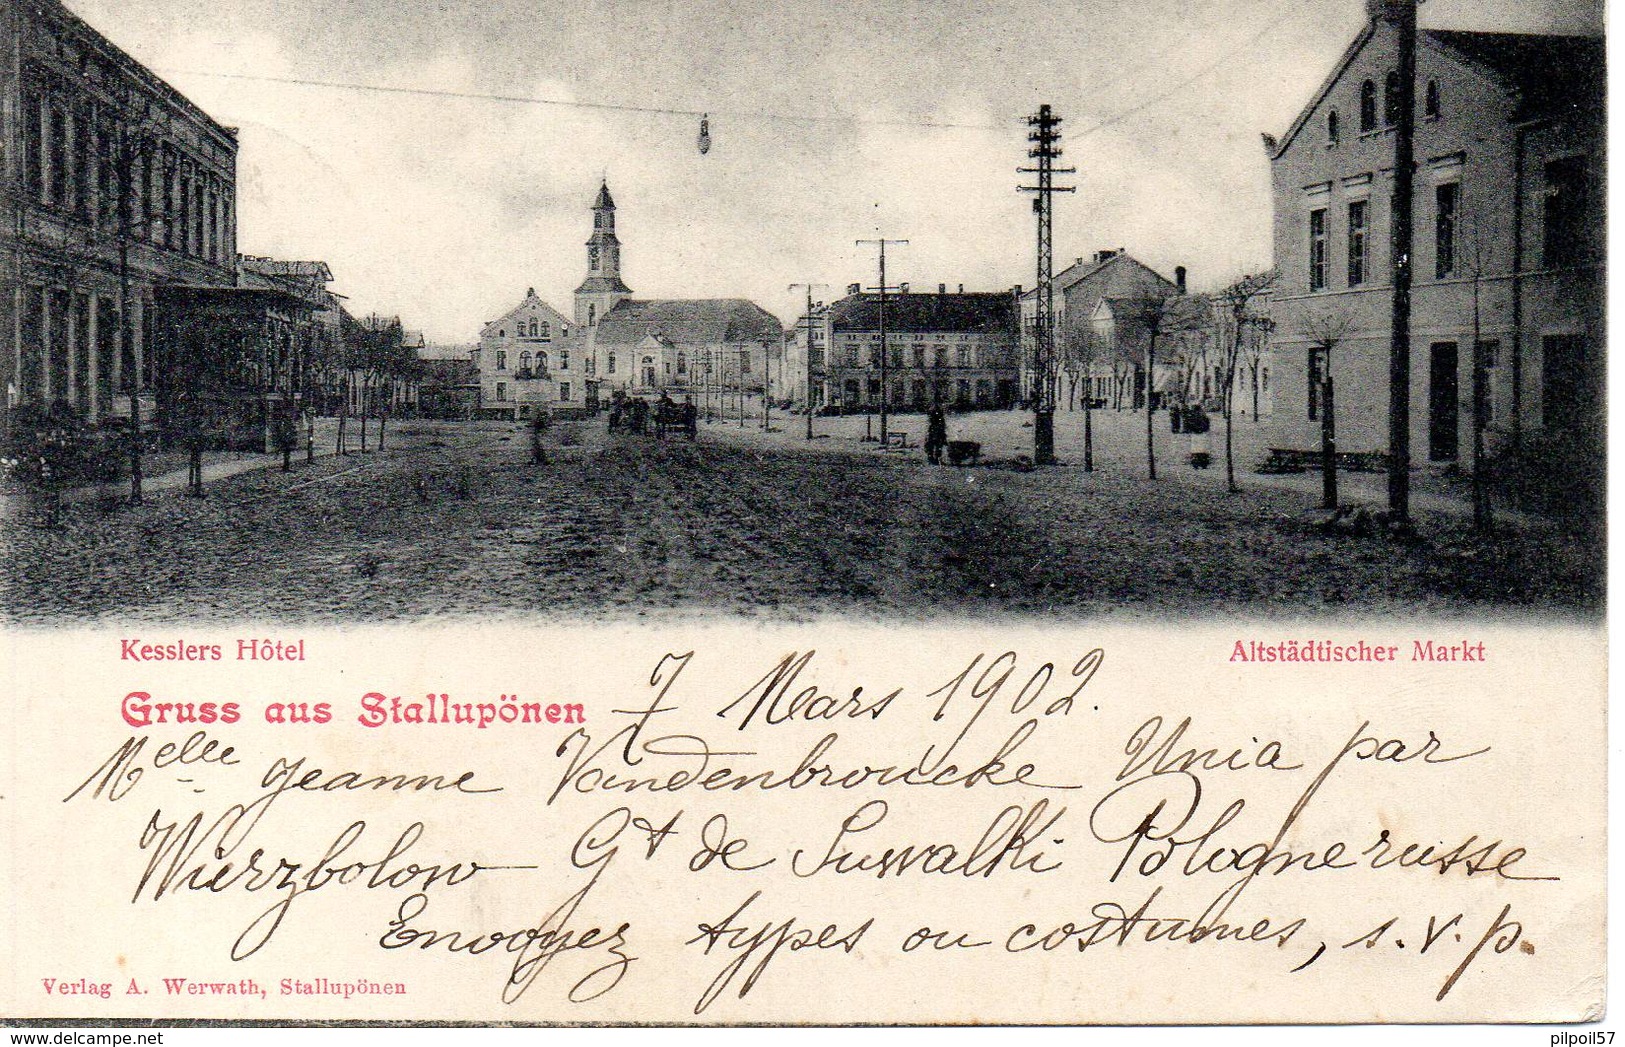 Kesslers Hôtel
Altstädtischer Markt
Gruss aus Stallupönen
7 Mars 1902.
Melle Jeanne Vandenbroucke Unia par
Wierzbolow Gt de Suwalki Pologne russe
Envoyez types ou costumes, s.v.p.
Verlag A. Werwath, Stallupönen
www.delcampe.net
pilpoil57